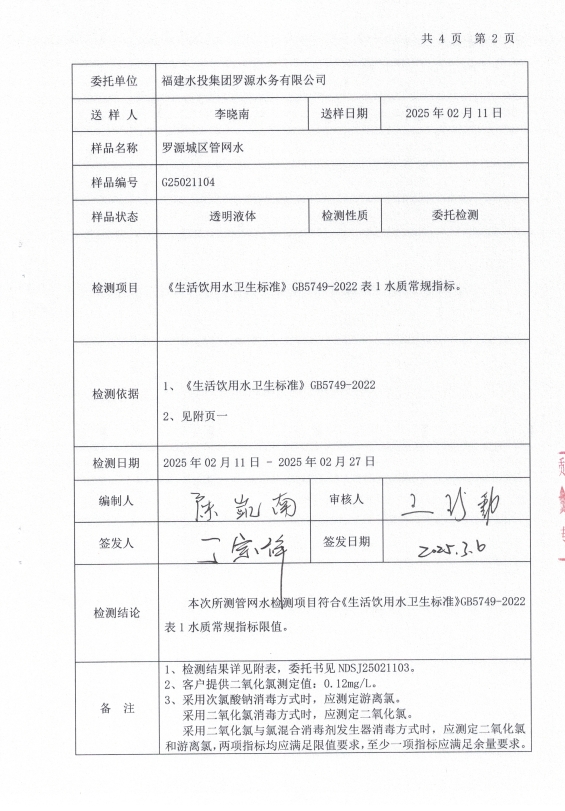 共 4 页 第 2 页
委托单位 福建水投集团罗源水务有限公司
送 样 人 李晓南 送样日期 2025 年 02 月 11 日
样品名称 罗源城区管网水
样品编号 G25021104
样品状态 透明液体 检测性质 委托检测
检测项目 《生活饮用水卫生标准》GB5749-2022 表 1 水质常规指标。
检测依据
1、《生活饮用水卫生标准》GB5749-2022
2、见附页一
检测日期 2025 年 02 月 11 日 - 2025 年 02 月 27 日
编制人 陈凯南 审核人
签发人 丁宗伴 签发日期 2025.3.6
检测结论
本次所测管网水检测项目符合《生活饮用水卫生标准》GB5749-2022
表 1 水质常规指标限值。
备 注
1、检测结果详见附表，委托书见 NDSJ25021103。
2、客户提供二氧化氯测定值：0.12mg/L。
3、采用次氯酸钠消毒方式时，应测定游离氯。
采用二氧化氯消毒方式时，应测定二氧化氯。
采用二氧化氯与氯混合消毒剂发生器消毒方式时，应测定二氧化氯
和游离氯，两项指标均应满足限值要求，至少一项指标应满足余量要求。